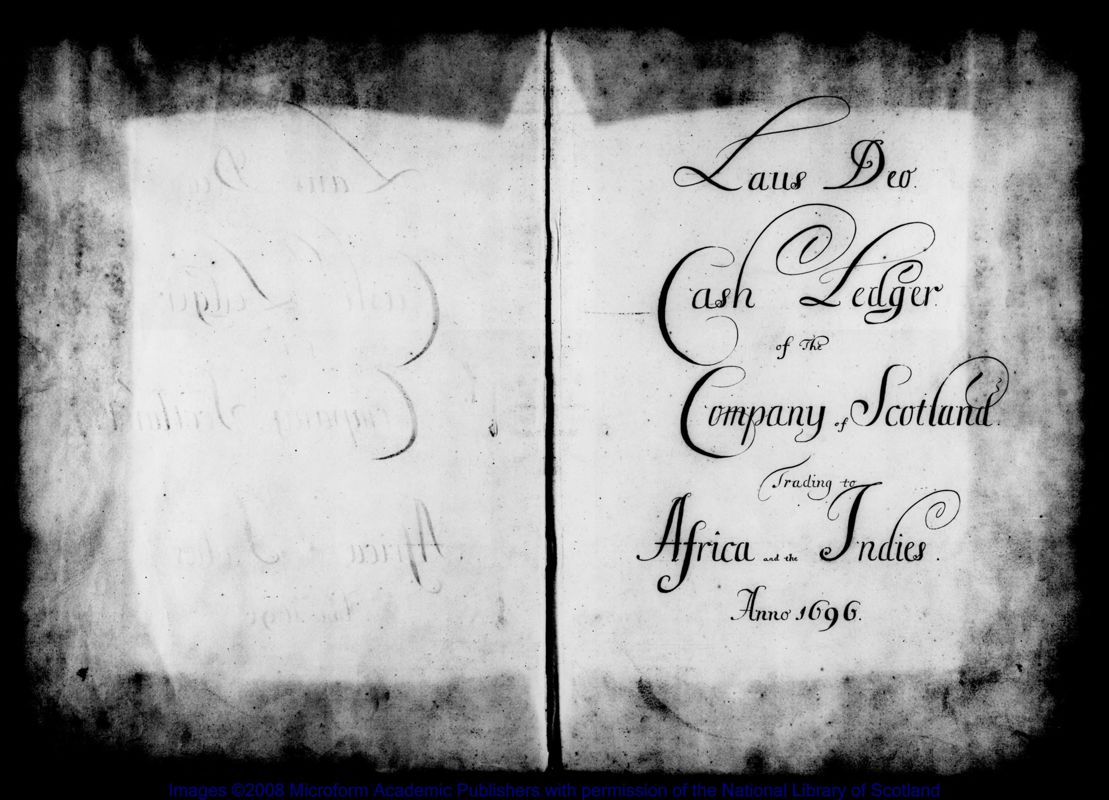 Laus Deo.
Cash Ledger
of The
Company of Scotland.
Trading to
Africa and the Indies.
Anno 1696.
Images ©2008 Microform Academic Publishers with permission of the National Library of Scotland